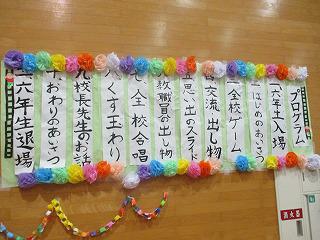 プログラム
一、六年生入場
二、はじめのあいさつ
三、全校ゲーム
四、交流出し物
五、思い出のスライド
六、教職員の出し物
七、全校合唱
八、くす玉わり
九、校長先生のお話
十、おわりのあいさつ
十一、六年生退場
消火器